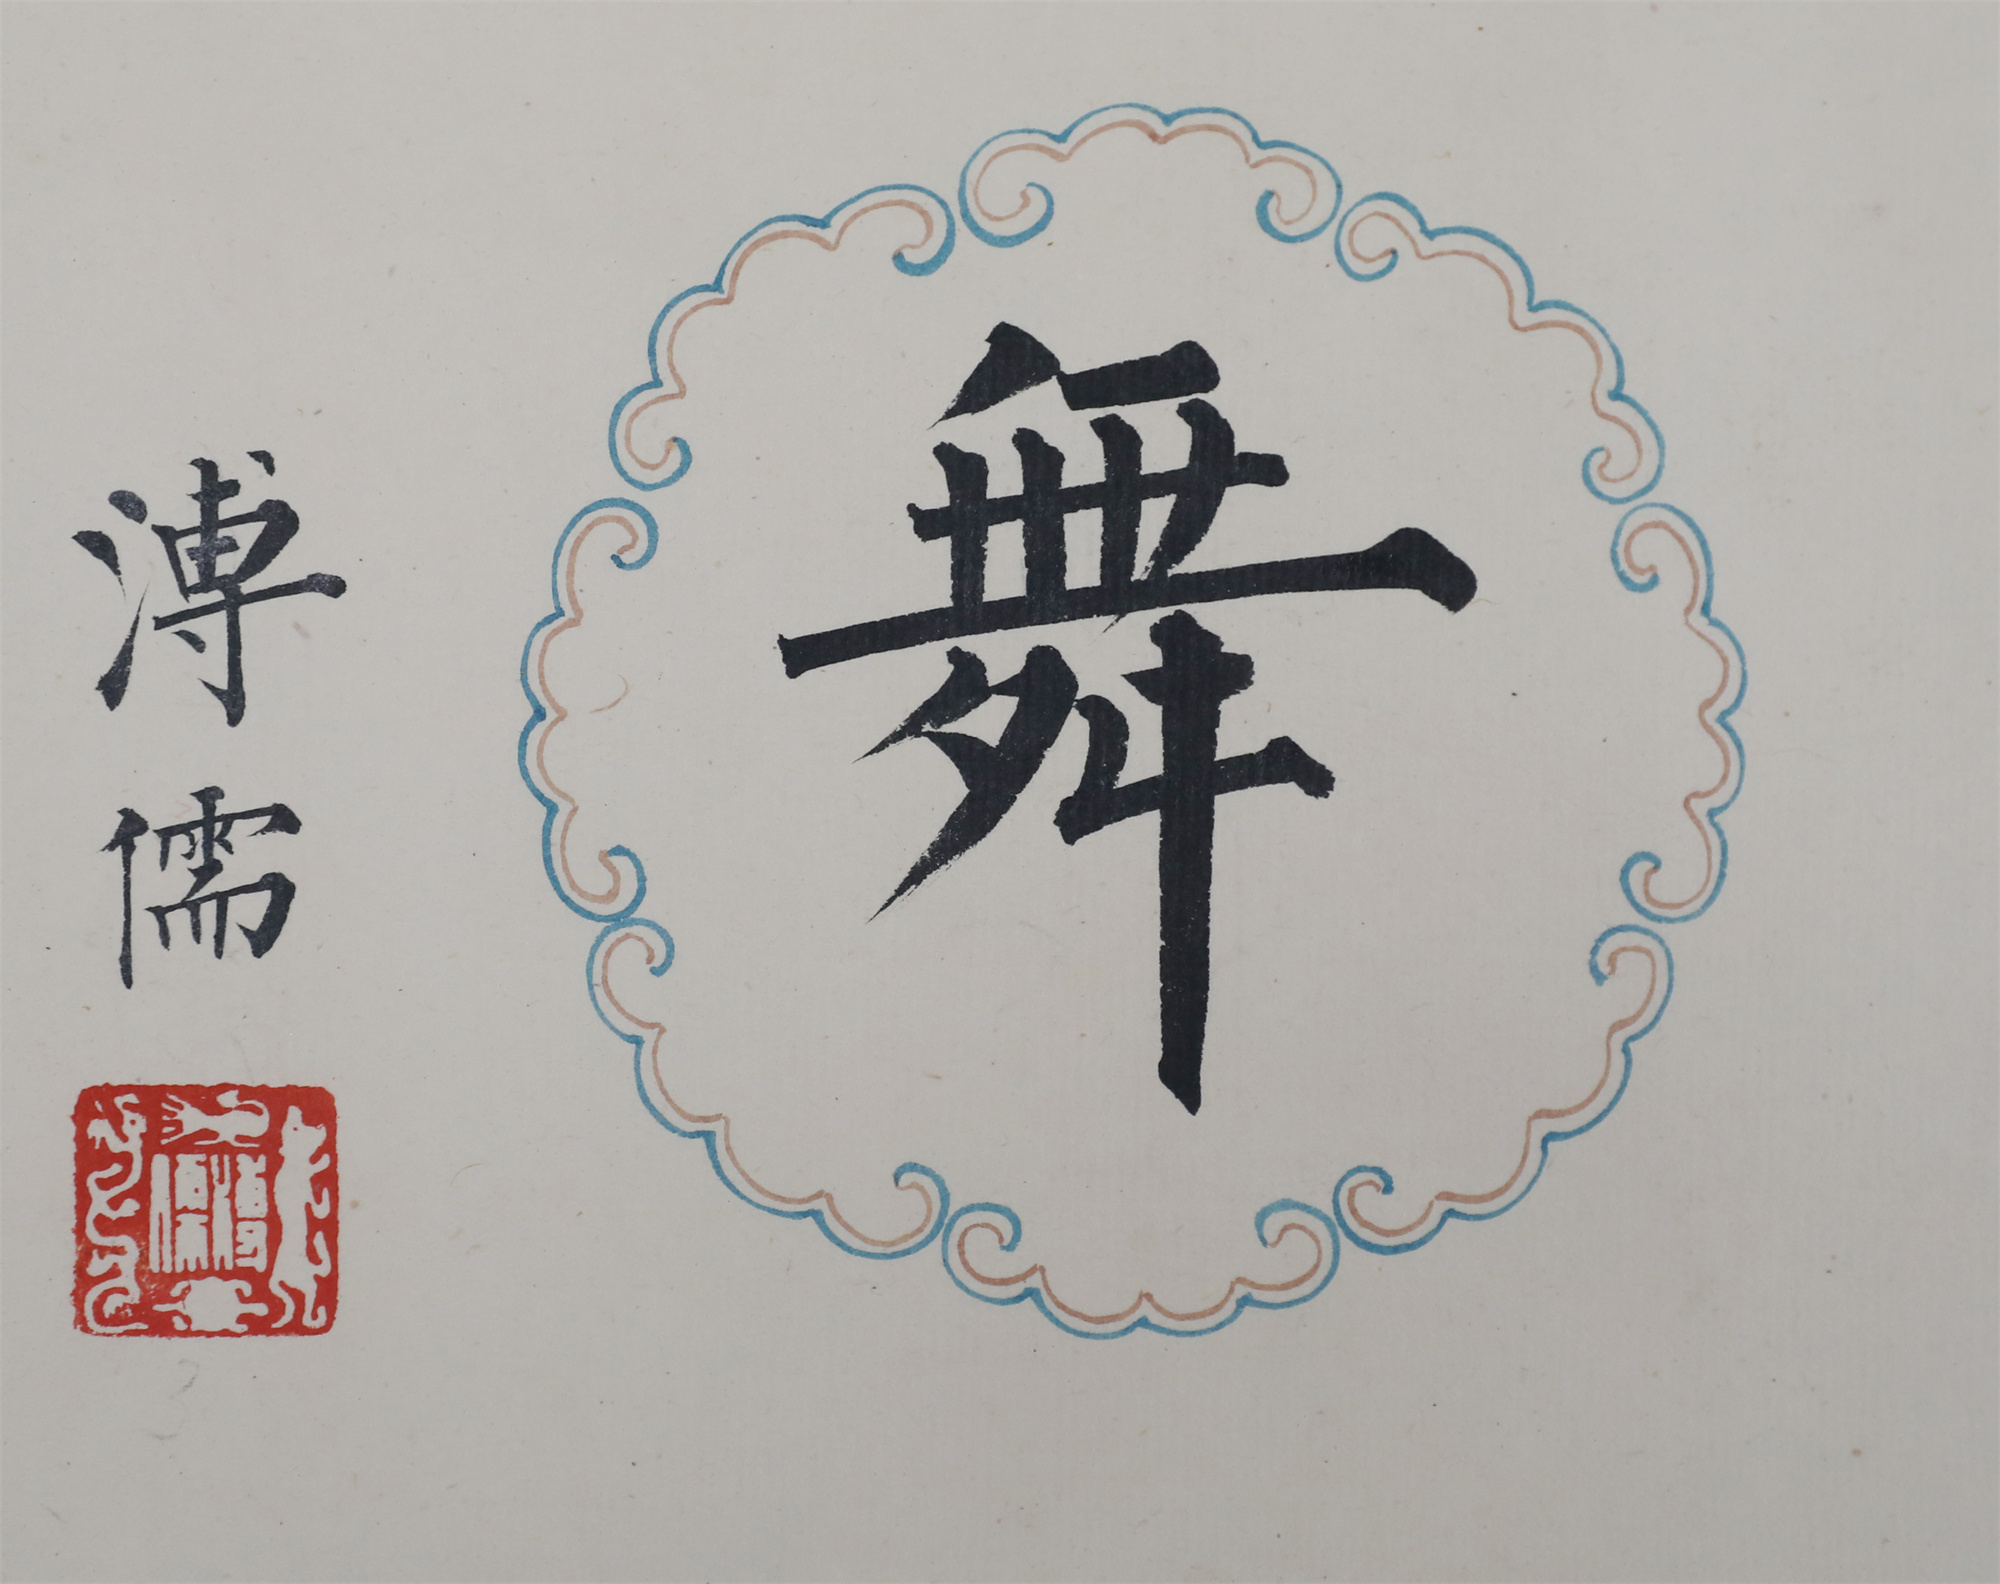 舞
溥儒
溥儒